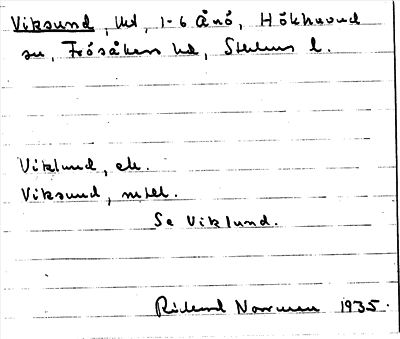 Viksund, hd, 1-6 Ånö, Hökhuvud
sn, Frösåkers hd, Sthlms l.
Viklund, ek.
Viksund, mtll.
Se Viklund.
Rickard Norrman 1935.